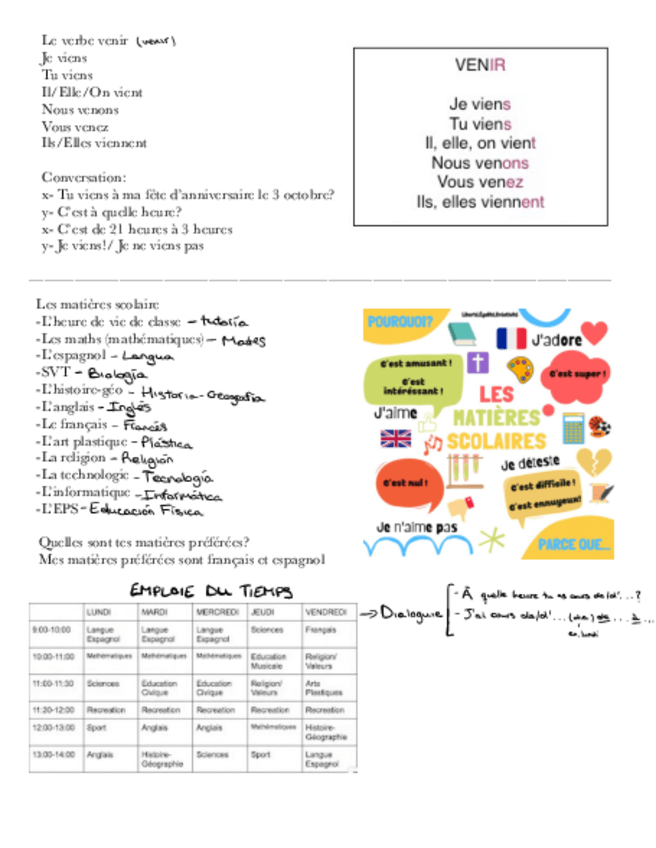 Le verbe venir (venir)
Je viens
Tu viens
Il/Elle/On vient
Nous venons
Vous venez
Ils/Elles viennent
Conversation:
x- Tu viens à ma fête d'anniversaire le 3 octobre?
y- C'est à quelle heure?
x- C'est de 21 heures à 3 heures
y- Je viens!/ Je ne viens pas
VENIR
Je viens
Tu viens
Il, elle, on vient
Nous venons
Vous venez
Ils, elles viennent
Les matières scolaire
-L'heure de vie de classe - tutoría
-Les maths (mathématiques) - Mates
-L'espagnol - Lengua
-SVT - Biología
-L'histoire-géo - Historia-Geografía
-L'anglais - Inglés
-Le français - Francés
-L'art plastique - Plástica
-La religion - Religión
-La technologie - Tecnología
-L'informatique - Informática
-L'EPS - Educación Física
Quelles sont tes matières préférées?
Mes matières préférées sont français et espagnol
POURQUOI?
J'adore
C'est amusant !
C'est intéressant !
C'est super !
J'aime
LES
MATIÈRES
SCOLAIRES
C'est nul !
Je déteste
C'est difficile !
C'est ennuyeux!
Je n'aime pas
PARCE QUE...
EMPLOIE DU TIEMPS
LUNDI MARDI MERCREDI JEUDI VENDREDI
9:00-10:00 Langue Espagnol Langue Espagnol Langue Espagnol Sciences Français
10:00-11:00 Mathématiques Mathématiques Mathématiques Education Musicale Religion/ Valeurs
11:00-11:30 Sciences Education Civique Education Civique Religion/ Valeurs Arts Plastiques
11:30-12:00 Recreation Recreation Recreation Recreation Recreation
12:00-13:00 Sport Anglais Anglais Mathématiques Histoire-Géographie
13:00-14:00 Anglais Histoire-Géographie Sciences Sport Langue Espagnol
→ Dialogue
- À quelle heure tu as cours de/d'...?
- J'ai cours de/d'... (día) de ... à ...
ex. lundi